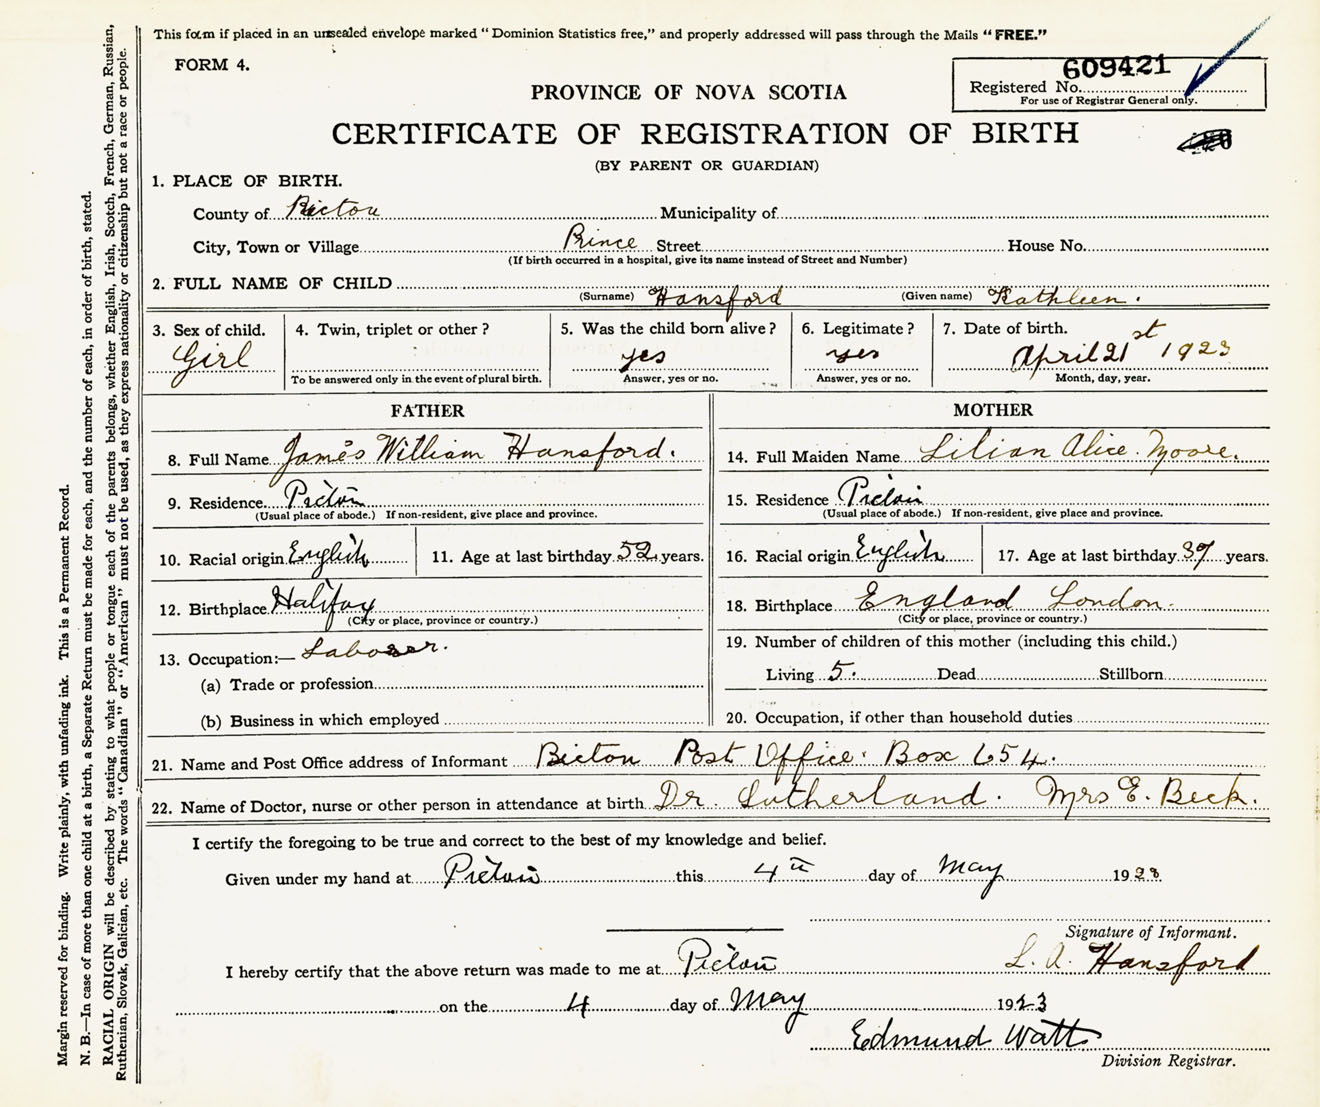 This form if placed in an unsealed envelope marked "Dominion Statistics free," and properly addressed will pass through the Mails "FREE."
FORM 4.
609421
Registered No.
For use of Registrar General only.
PROVINCE OF NOVA SCOTIA
CERTIFICATE OF REGISTRATION OF BIRTH
(BY PARENT OR GUARDIAN)
1. PLACE OF BIRTH.
County of Pictou Municipality of
City, Town or Village Prince Street House No.
(If birth occurred in a hospital, give its name instead of Street and Number)
2. FULL NAME OF CHILD
(Surname) Hansford (Given name) Kathleen.
3. Sex of child. 4. Twin, triplet or other? 5. Was the child born alive? 6. Legitimate? 7. Date of birth.
Girl yes yes April 21st 1923
To be answered only in the event of plural birth. Answer, yes or no. Answer, yes or no. Month, day, year.
FATHER
8. Full Name James William Hansford.
9. Residence Pictou
(Usual place of abode.) If non-resident, give place and province.
10. Racial origin English 11. Age at last birthday 52 years.
12. Birthplace Halifax
(City or place, province or country.)
13. Occupation:— Laborer.
(a) Trade or profession
(b) Business in which employed
MOTHER
14. Full Maiden Name Lilian Alice Moore.
15. Residence Pictou
(Usual place of abode.) If non-resident, give place and province.
16. Racial origin English 17. Age at last birthday 37 years.
18. Birthplace England London.
(City or place, province or country.)
19. Number of children of this mother (including this child.)
Living 5. Dead Stillborn
20. Occupation, if other than household duties
21. Name and Post Office address of Informant Picton Post Office. Box 654.
22. Name of Doctor, nurse or other person in attendance at birth Dr. Sutherland. Mrs E. Beck.
I certify the foregoing to be true and correct to the best of my knowledge and belief.
Given under my hand at Pictou this 4th day of May 1923
Signature of Informant.
L. A. Hansford
I hereby certify that the above return was made to me at Pictou
on the 4 day of May 1923
Edmund Watts
Division Registrar.
Margin reserved for binding. Write plainly, with unfading ink. This is a Permanent Record.
N. B.—In case of more than one child at a birth, a Separate Return must be made for each, and the number of each, in order of birth, stated.
RACIAL ORIGIN will be described by stating to what people or tongue each of the parents belongs, whether English, Irish, Scotch, French, German, Russian,
Ruthenian, Slovak, Galician, etc. The words "Canadian" or "American" must not be used, as they express nationality or citizenship but not a race or people.